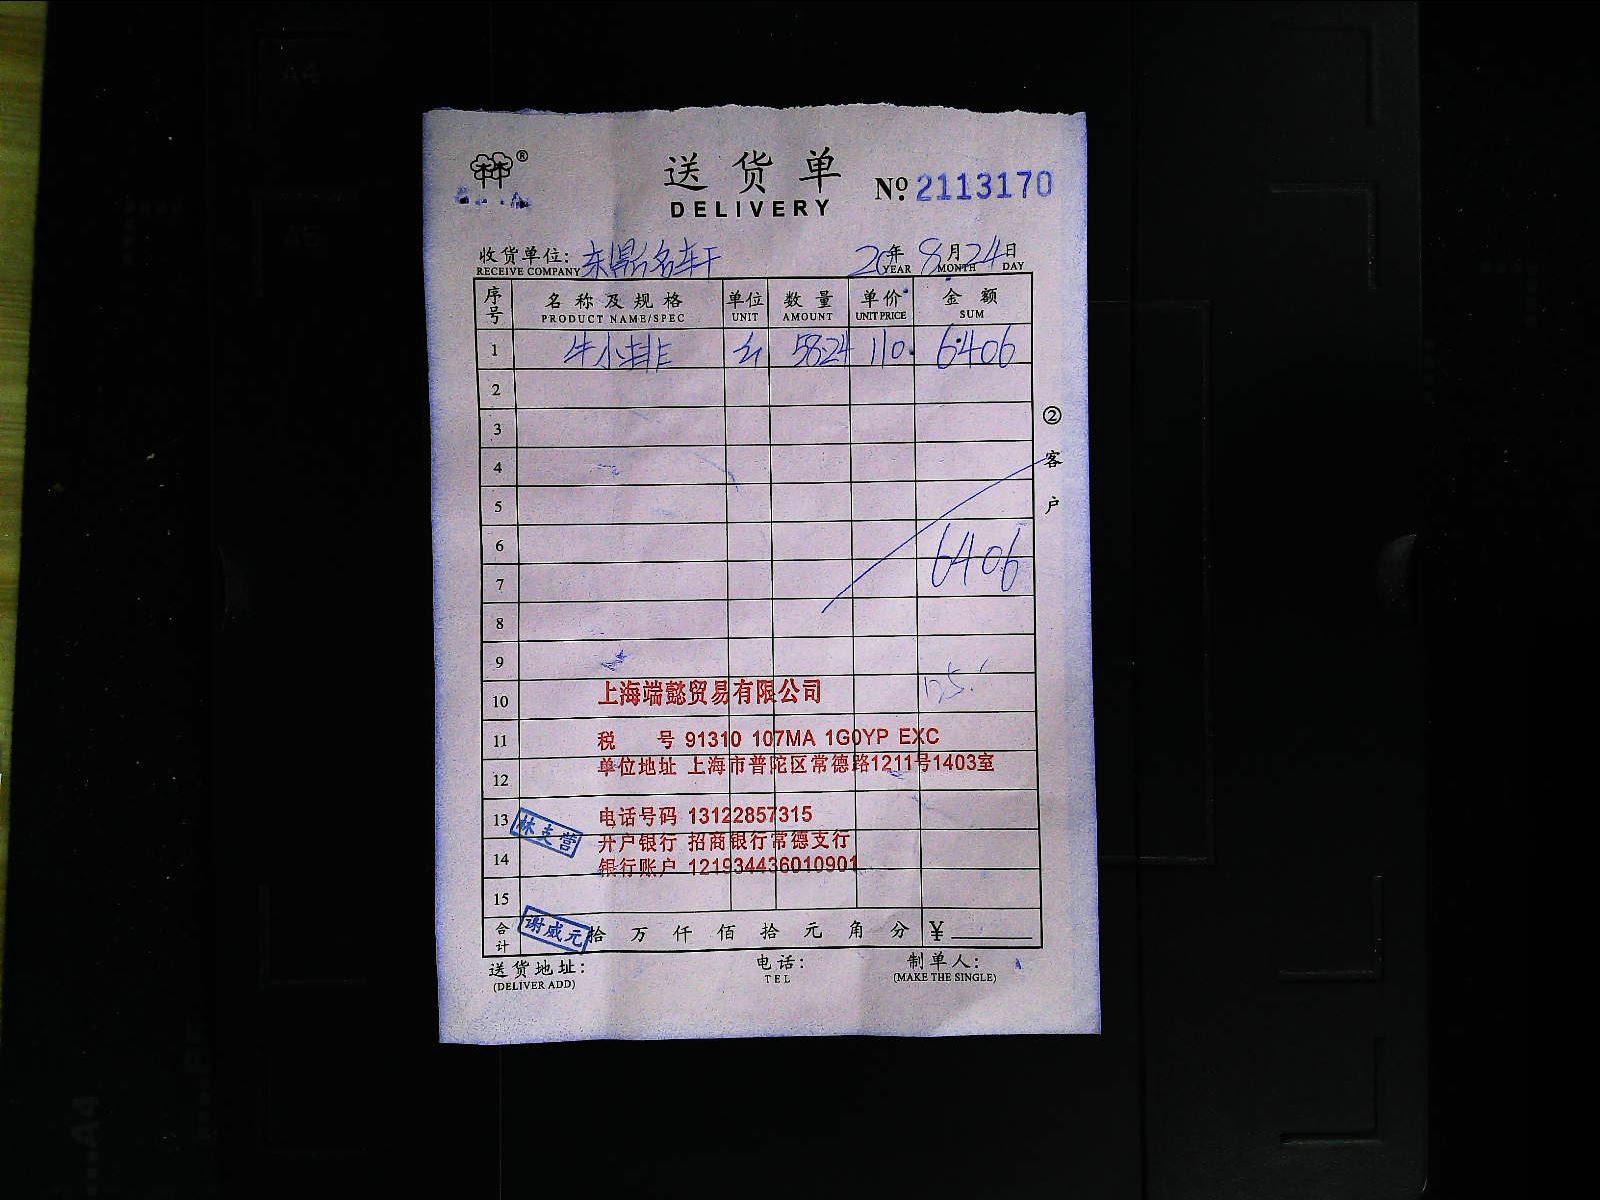 林林®
送货单 № 2113170
DELIVERY
收货单位: 东鼎名轩 20年 8月 24日
RECEIVE COMPANY YEAR MONTH DAY
序号 名称及规格 单位 数量 单价 金额
PRODUCT NAME/SPEC UNIT AMOUNT UNIT PRICE SUM
1 牛小排 58.24 110. 6406
2
3
4
5
6 6406
7
8
9
10 上海端懿贸易有限公司
11 税 号 91310 107MA 1G0YP EXC
12 单位地址 上海市普陀区常德路1211号1403室
13 林支营 电话号码 13122857315
开户银行 招商银行常德支行
14 银行账户 121934436010901
15
合计 谢威元 拾 万 仟 佰 拾 元 角 分 ¥
送货地址: 电话: 制单人:
(DELIVER ADD) TEL (MAKE THE SINGLE)
②客户